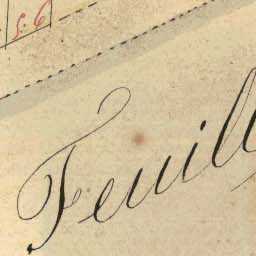 5.6
Feuill